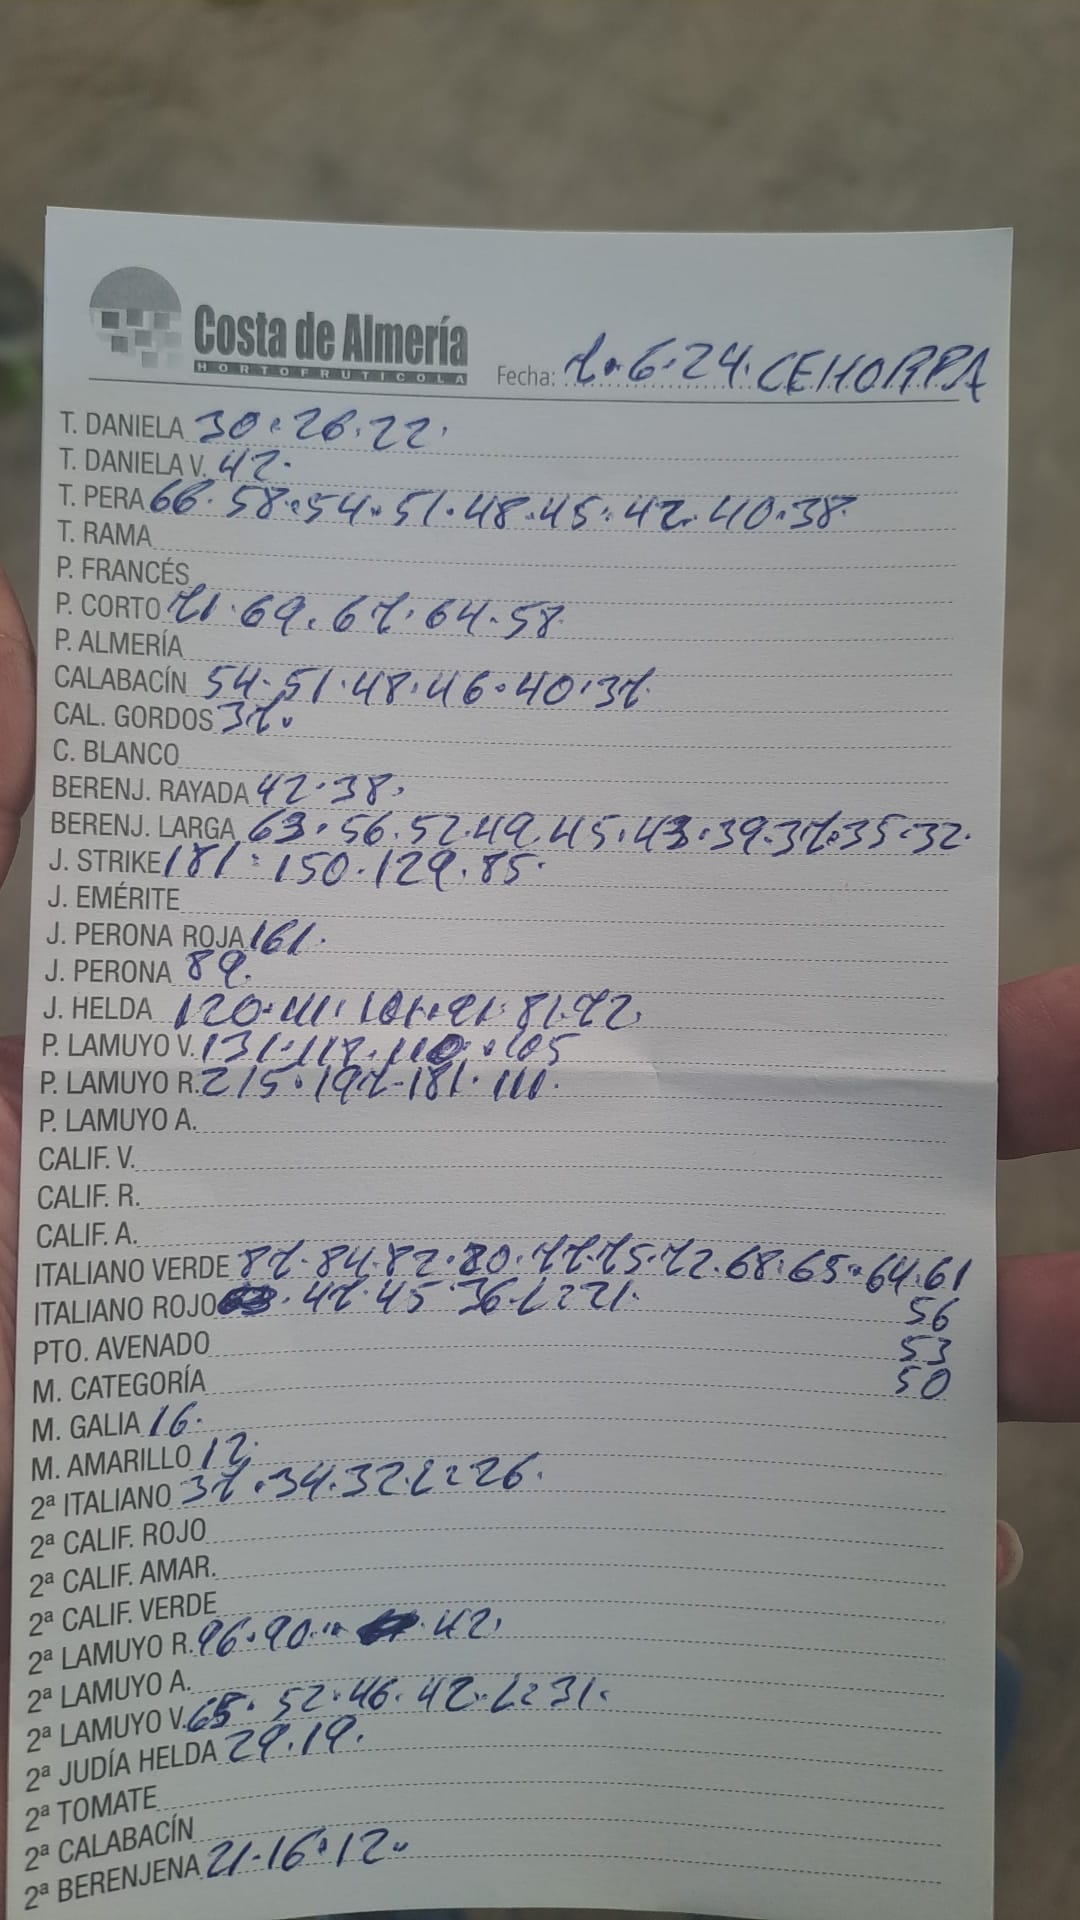 Costa de Almería
HORTOFRUTICOLA
Fecha: 7.6.24. CEHORPA
T. DANIELA 30.26.22.
T. DANIELA V. 42.
T. PERA 66.58.54.51.48.45.42.40.38.
T. RAMA
P. FRANCÉS
P. CORTO 71.69.67.64.58.
P. ALMERÍA
CALABACÍN 54.51.48.46.40.37.
CAL. GORDOS 37.
C. BLANCO
BERENJ. RAYADA 42.38.
BERENJ. LARGA 63.56.52.49.45.43.39.37.35.32.
J. STRIKE 181.150.129.85.
J. EMÉRITE
J. PERONA ROJA 161.
J. PERONA 89.
J. HELDA 120.111.101.91.81.72.
P. LAMUYO V. 131.117.110.105
P. LAMUYO R. 215.197-181.111.
P. LAMUYO A.
CALIF. V.
CALIF. R.
CALIF. A.
ITALIANO VERDE 87.84.82.80.77.75.72.68.65.64.61
56
53
50
ITALIANO ROJO 47.45.36.2ª 21.
PTO. AVENADO
M. CATEGORÍA
M. GALIA 16.
M. AMARILLO 12.
2ª ITALIANO 37.34.32.2ª 26.
2ª CALIF. ROJO
2ª CALIF. AMAR.
2ª CALIF. VERDE
2ª LAMUYO R. 96.90. 42.
2ª LAMUYO A.
2ª LAMUYO V. 65.52.46.42.2ª 31.
2ª JUDÍA HELDA 29.19.
2ª TOMATE
2ª CALABACÍN
2ª BERENJENA 21.16.12.